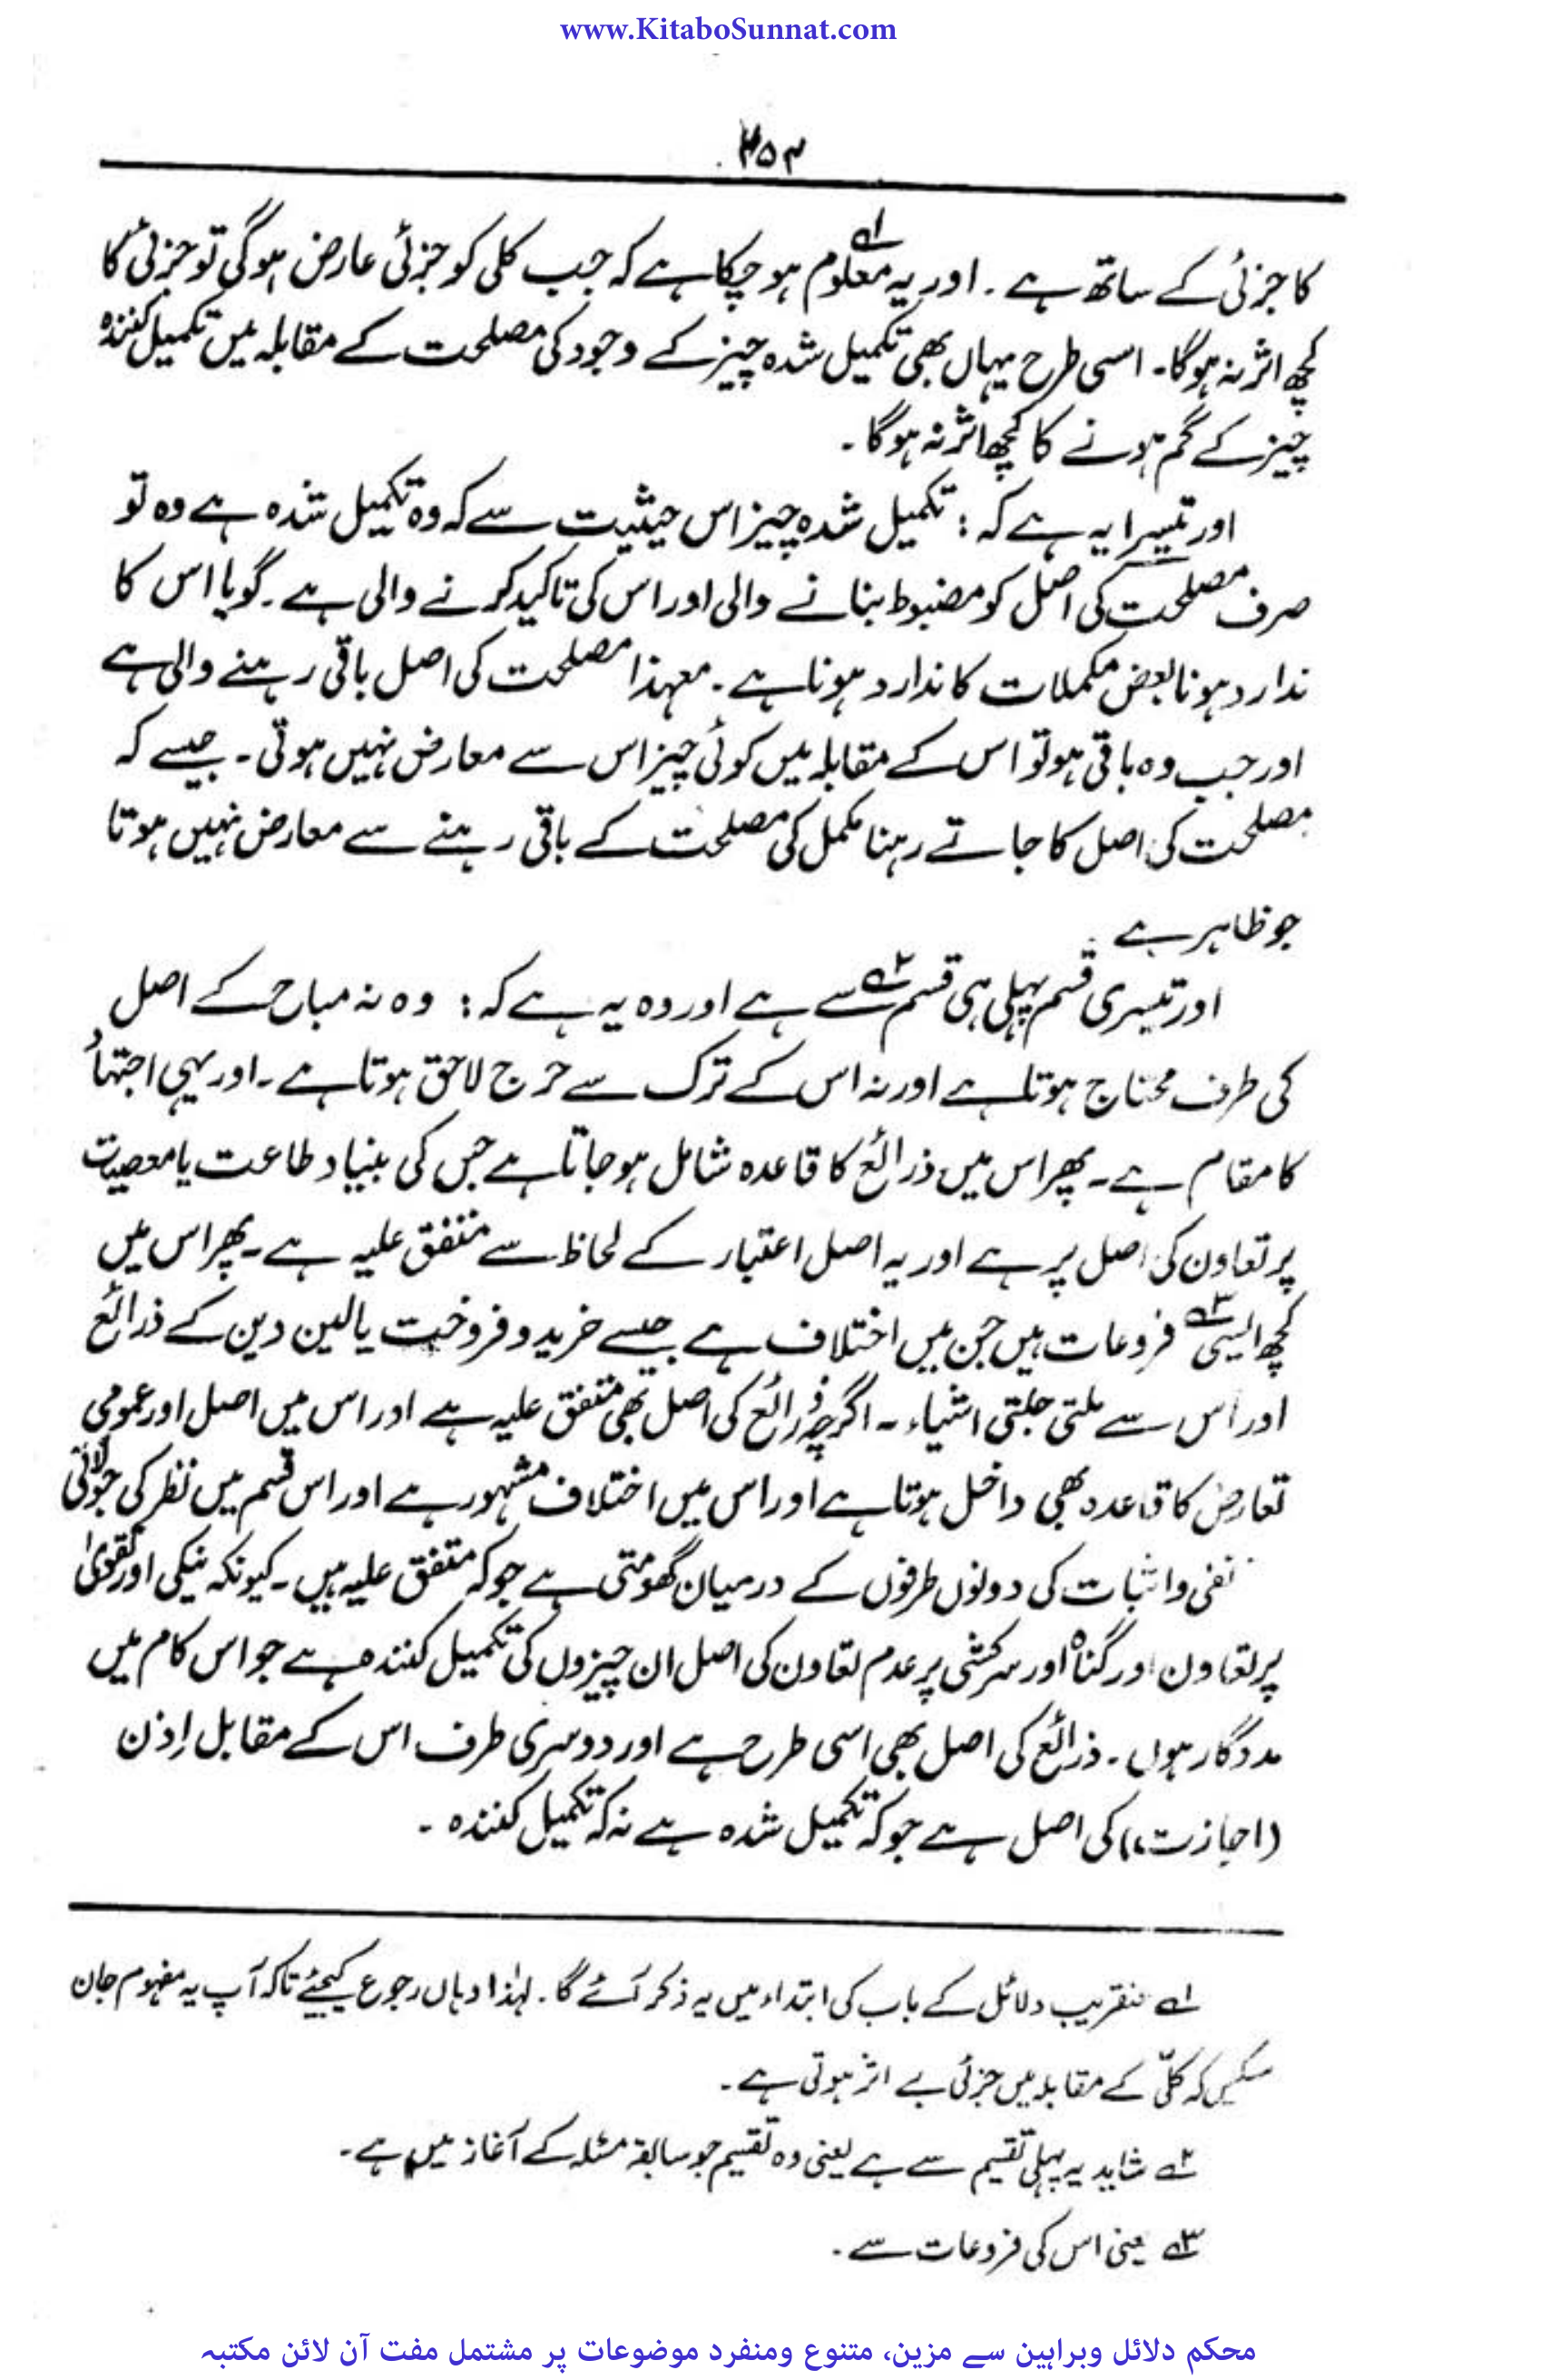 www.KitaboSunnat.com
۳۵۳
کا جزئی کے ساتھ ہے۔ اور یہ معلوم۱ ہو چکا ہے کہ جب کلی کو جزئی عارض ہو گی تو جزئی کا
کچھ اثر نہ ہوگا۔ اسی طرح یہاں بھی تکمیل شدہ چیز کے وجود کی مصلحت کے مقابلہ میں تکمیل کنندہ
چیز کے گم ہونے کا کچھ اثر نہ ہوگا۔
اور تیسرا یہ ہے کہ : تکمیل شدہ چیز اس حیثیت سے کہ وہ تکمیل شدہ ہے وہ تو
صرف مصلحت کی اصل کو مضبوط بنانے والی اور اس کی تاکید کرنے والی ہے۔ گویا اس کا
ندارد ہونا بعض مکملات کا ندارد ہونا ہے۔ معہذا مصلحت کی اصل باقی رہنے والی ہے
اور جب وہ باقی ہو تو اس کے مقابلہ میں کوئی چیز اس سے معارض نہیں ہوتی۔ جیسے کہ
مصلحت کی اصل کا جاتے رہنا مکمل کی مصلحت کے باقی رہنے سے معارض نہیں ہوتا
جو ظاہر ہے
اور تیسری قسم پہلی ہی قسم۲ سے ہے اور وہ یہ ہے کہ : وہ نہ مباح کے اصل
کی طرف محتاج ہوتا ہے اور نہ اس کے ترک سے حرج لاحق ہوتا ہے۔ اور یہی اجتہاد
کا مقام ہے۔ پھر اس میں ذرائع کا قاعدہ شامل ہو جاتا ہے جس کی بنیاد طاعت یا معصیت
پر تعاون کی اصل پر ہے اور یہ اصل اعتبار کے لحاظ سے متفق علیہ ہے۔ پھر اس میں
کچھ ایسی۳ فروعات ہیں جن میں اختلاف ہے جیسے خرید و فروخت یا لین دین کے ذرائع
اور اس سے ملتی جلتی اشیاء۔ اگرچہ ذرائع کی اصل بھی متفق علیہ ہے اور اس میں اصل اور عمومی
تعارض کا قاعدہ بھی داخل ہوتا ہے اور اس میں اختلاف مشہور ہے اور اس قسم میں نظر کی جولانی
نفی و اثبات کی دونوں طرفوں کے درمیان گھومتی ہے جو کہ متفق علیہ ہیں۔ کیونکہ نیکی اور تقویٰ
پر تعاون اور گناہ اور سرکشی پر عدم تعاون کی اصل ان چیزوں کی تکمیل کنندہ ہے جو اس کام میں
مددگار ہوں۔ ذرائع کی اصل بھی اسی طرح ہے اور دوسری طرف اس کے مقابل اِذن
(اجازت) کی اصل ہے جو کہ تکمیل شدہ ہے نہ کہ تکمیل کنندہ۔
۱؎ عنقریب دلائل کے باب کی ابتداء میں یہ ذکر آئے گا۔ لہٰذا وہاں رجوع کیجئے تاکہ آپ یہ مفہوم جان
سکیں کہ کلّی کے مقابلہ میں جزئی بے اثر ہوتی ہے۔
۲؎ شاید یہ پہلی تقسیم سے ہے یعنی وہ تقسیم جو سابقہ مسئلہ کے آغاز میں ہے۔
۳؎ یعنی اس کی فروعات سے۔
محکم دلائل وبراہین سے مزین، متنوع ومنفرد موضوعات پر مشتمل مفت آن لائن مکتبہ